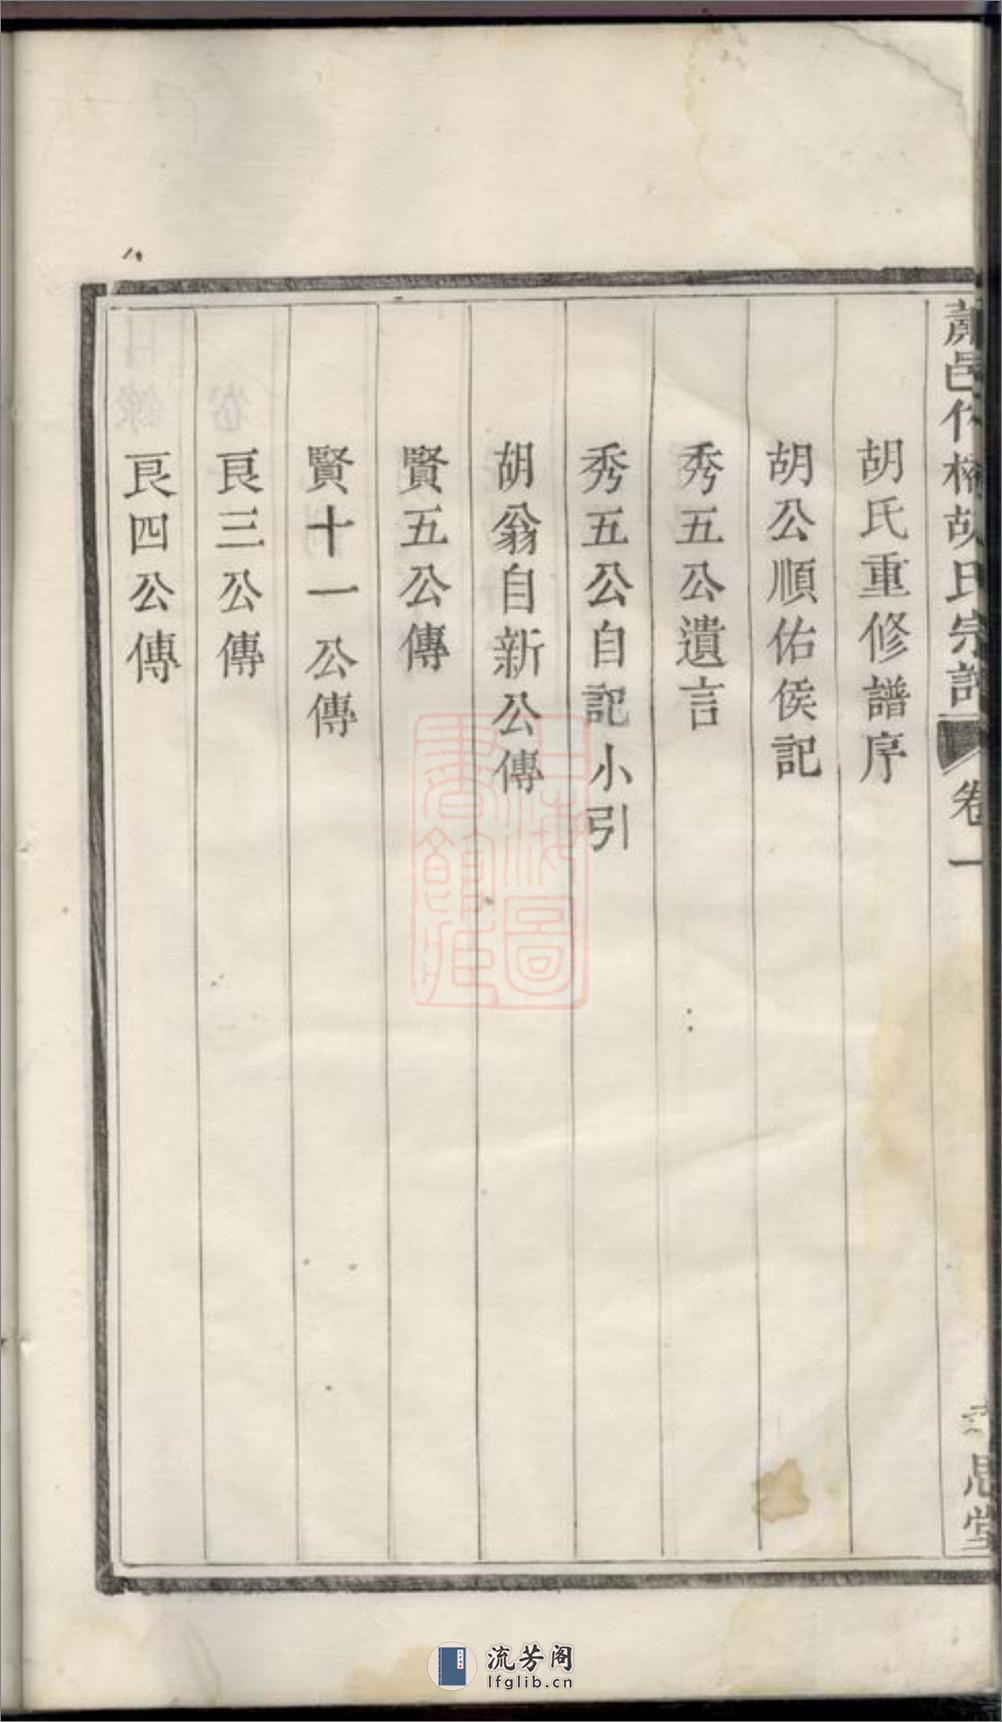 胡氏重修譜序
胡公順佑侯記
秀五公遺言
秀五公自記小引
胡翁自新公傳
賢五公傳
賢十一公傳
良三公傳
良四公傳
胡氏宗譜 卷一
思堂
上海圖書館藏
流芳阁
lfglib.cn